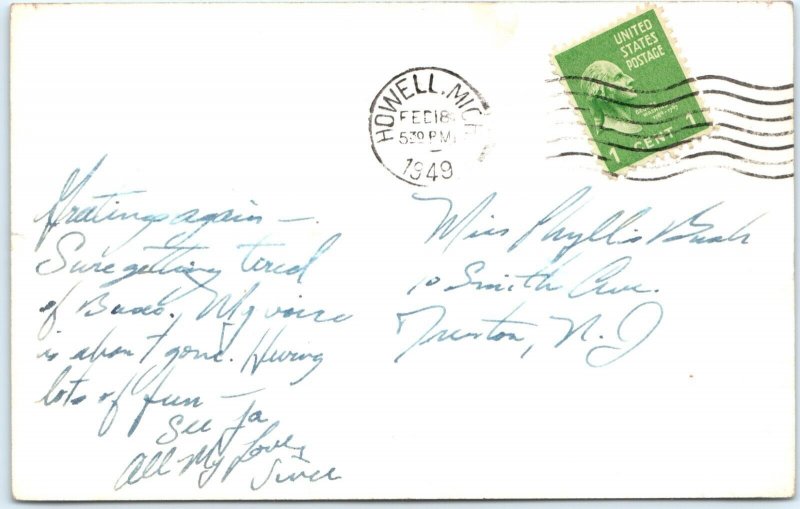 UNITED
STATES
POSTAGE
1 CENT 1
HOWELL, MICH
FEB 18
5 30 PM
1949
Gratings again —
Sure getting tired
of Buses. My voice
is about gone. Having
lots of fun —
See Ya
All My Love,
Miss Phyllis Bush
10 Smith Ave.
Trenton, N. J